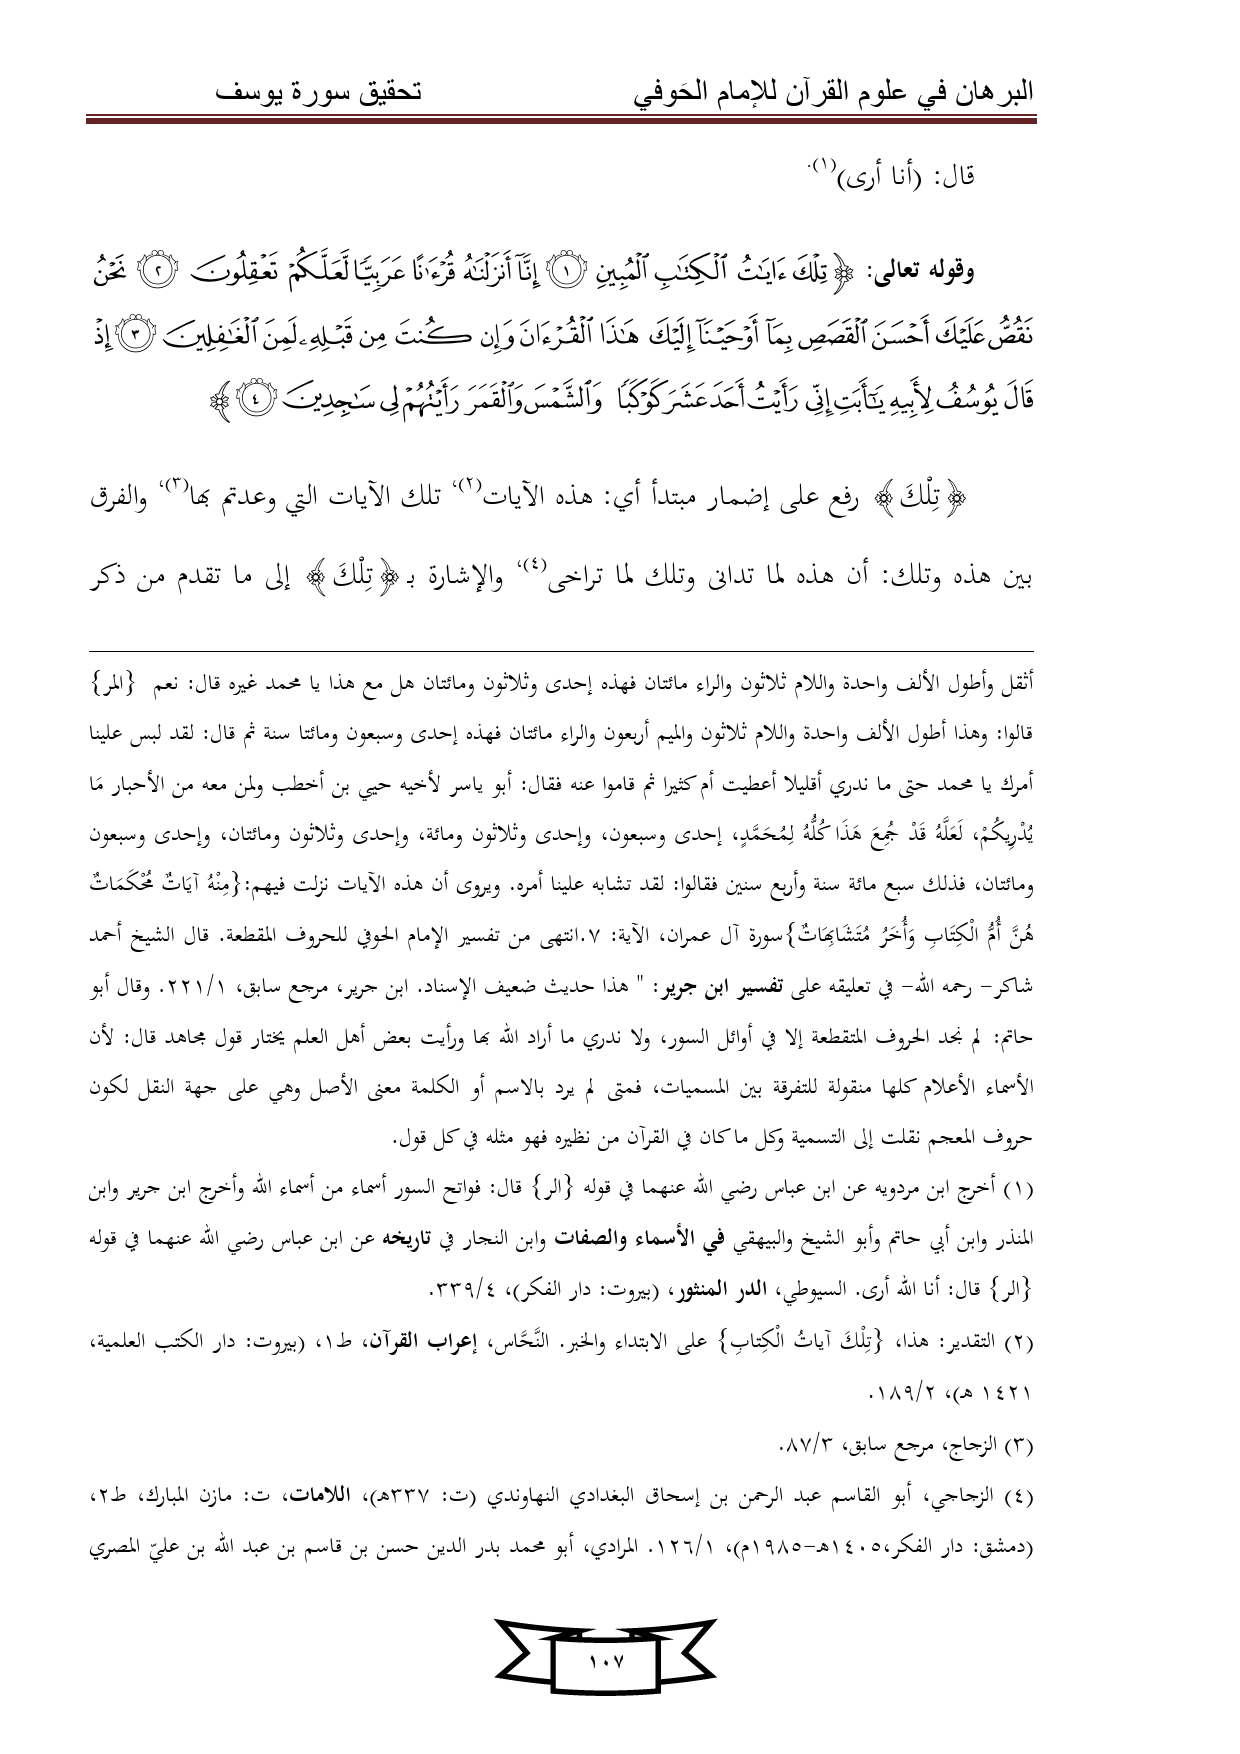 البرهان في علوم القرآن للإمام الحَوفي تحقيق سورة يوسف
قال: (أنا أرى)(١).
وقوله تعالى: ﴿ تِلْكَ ءَايَٰتُ ٱلْكِتَٰبِ ٱلْمُبِينِ ١ إِنَّآ أَنزَلْنَٰهُ قُرْءَٰنًا عَرَبِيًّا لَّعَلَّكُمْ تَعْقِلُونَ ٢ نَحْنُ
نَقُصُّ عَلَيْكَ أَحْسَنَ ٱلْقَصَصِ بِمَآ أَوْحَيْنَآ إِلَيْكَ هَٰذَا ٱلْقُرْءَانَ وَإِن كُنتَ مِن قَبْلِهِۦ لَمِنَ ٱلْغَٰفِلِينَ ٣ إِذْ
قَالَ يُوسُفُ لِأَبِيهِ يَٰٓأَبَتِ إِنِّي رَأَيْتُ أَحَدَ عَشَرَ كَوْكَبًا وَٱلشَّمْسَ وَٱلْقَمَرَ رَأَيْتُهُمْ لِي سَٰجِدِينَ ٤ ﴾
﴿ تِلْكَ ﴾ رفع على إضمار مبتدأ أي: هذه الآيات(٢)، تلك الآيات التي وعدتم بها(٣)، والفرق
بين هذه وتلك: أن هذه لما تدانى وتلك لما تراخى(٤)، والإشارة بـ ﴿ تِلْكَ ﴾ إلى ما تقدم من ذكر
أثقل وأطول الألف واحدة واللام ثلاثون والراء مائتان فهذه إحدى وثلاثون ومائتان هل مع هذا يا محمد غيره قال: نعم {المر}
قالوا: وهذا أطول الألف واحدة واللام ثلاثون والميم أربعون والراء مائتان فهذه إحدى وسبعون ومائتا سنة ثم قال: لقد لبس علينا
أمرك يا محمد حتى ما ندري أقليلا أعطيت أم كثيرا ثم قاموا عنه فقال: أبو ياسر لأخيه حيي بن أخطب ولمن معه من الأحبار مَا
يُدْرِيكُمْ، لَعَلَّهُ قَدْ جُمِعَ هَذَا كُلُّهُ لِمُحَمَّدٍ، إحدى وسبعون، وإحدى وثلاثون ومائة، وإحدى وثلاثون ومائتان، وإحدى وسبعون
ومائتان، فذلك سبع مائة سنة وأربع سنين فقالوا: لقد تشابه علينا أمره. ويروى أن هذه الآيات نزلت فيهم:{مِنْهُ آيَاتٌ مُحْكَمَاتٌ
هُنَّ أُمُّ الْكِتَابِ وَأُخَرُ مُتَشَابِهَاتٌ}سورة آل عمران، الآية: ٧.انتهى من تفسير الإمام الحوفي للحروف المقطعة. قال الشيخ أحمد
شاكر- رحمه الله- في تعليقه على تفسير ابن جرير: " هذا حديث ضعيف الإسناد. ابن جرير، مرجع سابق، ٢٢١/١. وقال أبو
حاتم: لم نجد الحروف المتقطعة إلا في أوائل السور، ولا ندري ما أراد الله بها ورأيت بعض أهل العلم يختار قول مجاهد قال: لأن
الأسماء الأعلام كلها منقولة للتفرقة بين المسميات، فمتى لم يرد بالاسم أو الكلمة معنى الأصل وهي على جهة النقل لكون
حروف المعجم نقلت إلى التسمية وكل ما كان في القرآن من نظيره فهو مثله في كل قول.
(١) أخرج ابن مردويه عن ابن عباس رضي الله عنهما في قوله {الر} قال: فواتح السور أسماء من أسماء الله وأخرج ابن جرير وابن
المنذر وابن أبي حاتم وأبو الشيخ والبيهقي في الأسماء والصفات وابن النجار في تاريخه عن ابن عباس رضي الله عنهما في قوله
{الر} قال: أنا الله أرى. السيوطي، الدر المنثور، (بيروت: دار الفكر)، ٣٣٩/٤.
(٢) التقدير: هذا، {تِلْكَ آياتُ الْكِتابِ} على الابتداء والخبر. النَّحَّاس، إعراب القرآن، ط١، (بيروت: دار الكتب العلمية،
١٤٢١ هـ)، ١٨٩/٢.
(٣) الزجاج، مرجع سابق، ٨٧/٣.
(٤) الزجاجي، أبو القاسم عبد الرحمن بن إسحاق البغدادي النهاوندي (ت: ٣٣٧هـ)، اللامات، ت: مازن المبارك، ط٢،
(دمشق: دار الفكر،١٤٠٥هـ-١٩٨٥م)، ١٢٦/١. المرادي، أبو محمد بدر الدين حسن بن قاسم بن عبد الله بن عليّ المصري
١٠٧